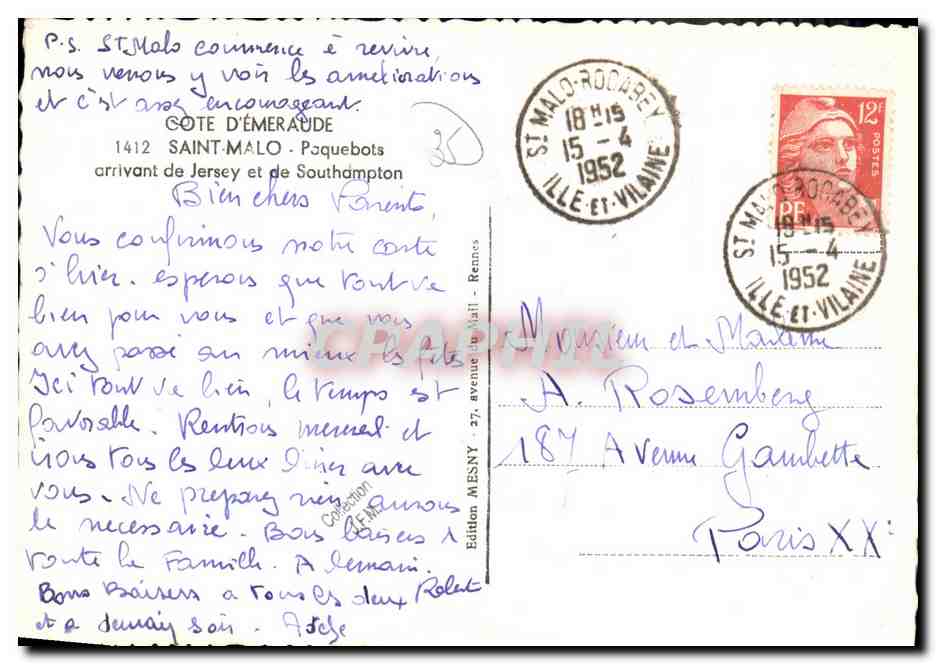 P.S. St Malo commence à revivre,
nous venons y voir les améliorations
et c'est assez encourageant.
COTE D'ÉMERAUDE
1412 SAINT-MALO - Paquebots
arrivant de Jersey et de Southampton
25
Bien chers Parents,
Vous confirmons notre carte
d'hier. espérons que tout va
bien pour vous et que vous
avez passé au mieux les fêtes
Ici tout va bien, le temps est
favorable. Rentrons mercredi et
irons tous les deux dîner avec
vous. Ne préparez rien aurons
le nécessaire. Bons baisers à
toute la Famille. A demain.
Robert
Bons Baisers a tous les deux
et a demain soir. Adèle
Collection
J.F.M.
Edition MESNY - 27, avenue du Mail - Rennes
CPAPHIL
ST MALO-ROCABEY
18H15
15 - 4
1952
ILLE-ET-VILAINE
12F
POSTES
RF
ST MALO-ROCABEY
18H15
15 - 4
1952
ILLE-ET-VILAINE
Monsieur et Madame
A. Rosemberg
187 Avenue Gambette
Paris XXe